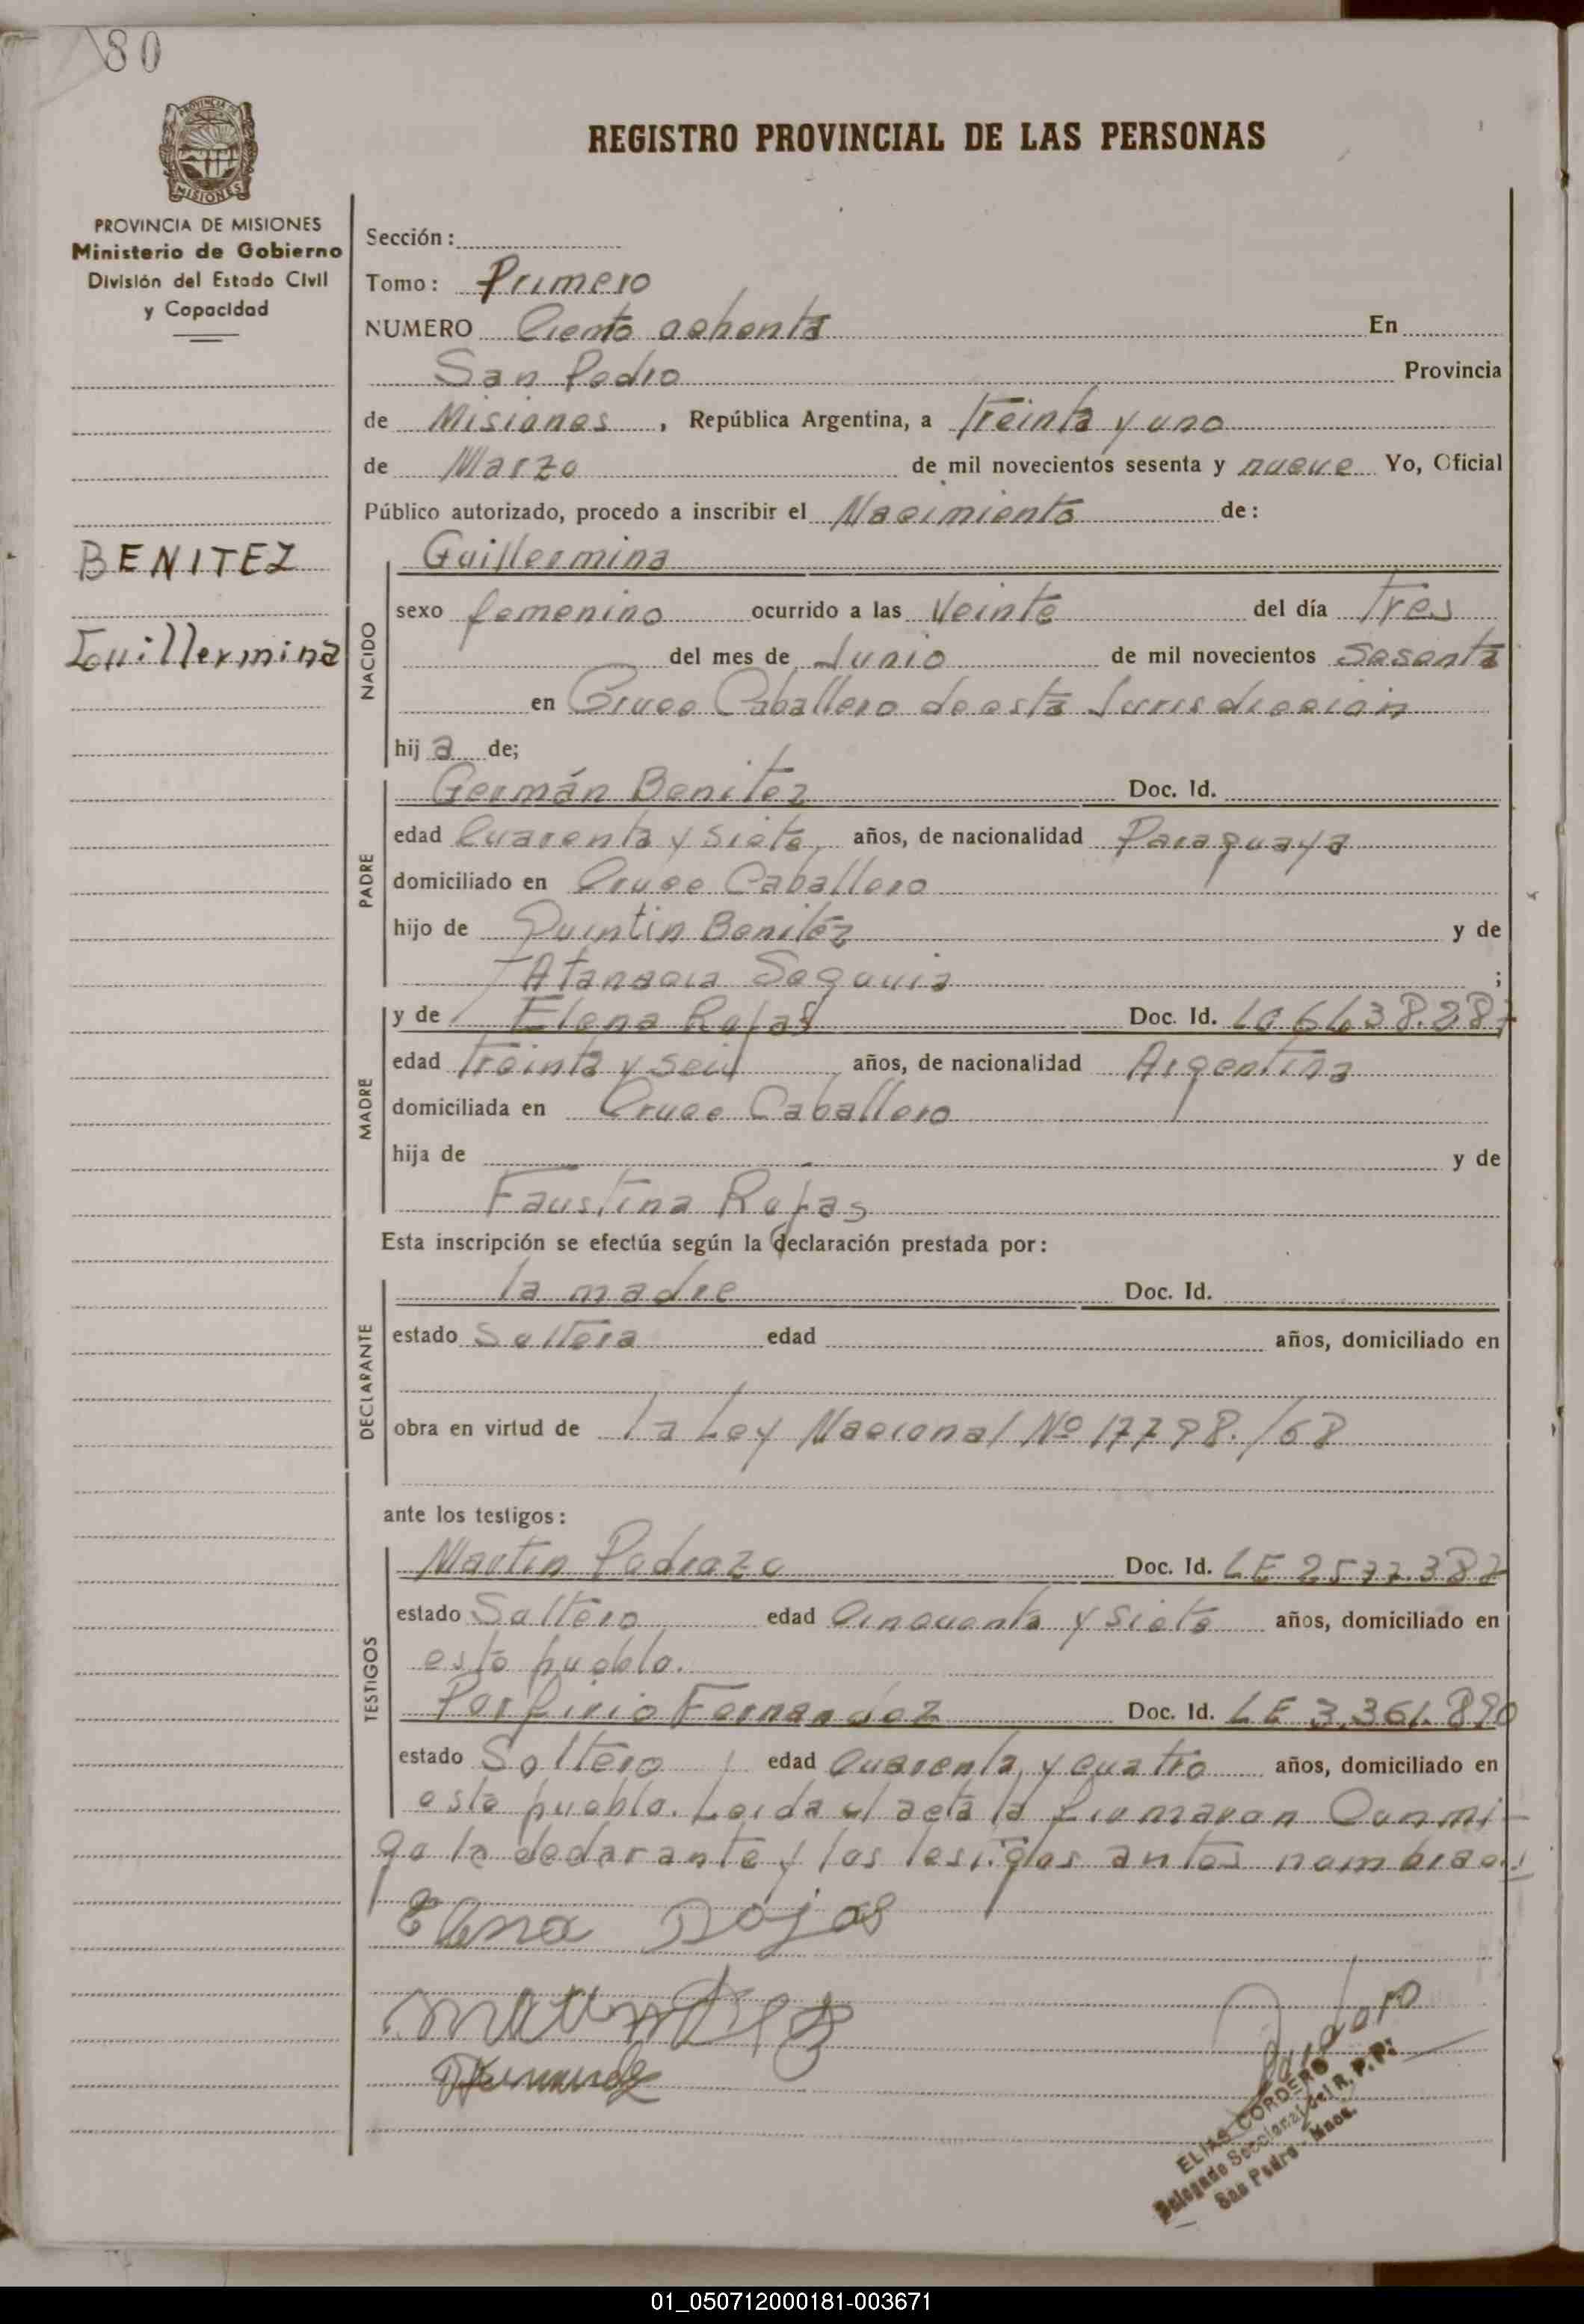 180
REGISTRO PROVINCIAL DE LAS PERSONAS
PROVINCIA DE MISIONES
Ministerio de Gobierno
División del Estado Civil
y Capacidad
BENITEZ
Guillermina
Sección:
Tomo: Primero
NUMERO Ciento ochenta En
San Pedro Provincia
de Misiones, República Argentina, a treinta y uno
de Marzo de mil novecientos sesenta y nueve Yo, Oficial
Público autorizado, procedo a inscribir el Nacimiento de:
Guillermina
NACIDO
sexo femenino ocurrido a las Veinte del día tres
del mes de Junio de mil novecientos Sesenta
en Cruce Caballero de esta Jurisdicción
hija de;
PADRE
Germán Benitez Doc. Id.
edad Cuarenta y siete, años, de nacionalidad Paraguaya
domiciliado en Cruce Caballero
hijo de Quintin Benitéz y de
Atanacia Segovia ;
MADRE
y de Elena Rojas Doc. Id.
edad treinta y seis años, de nacionalidad Argentina
domiciliada en Cruce Caballero
hija de y de
Faustina Rojas
Esta inscripción se efectúa según la declaración prestada por:
DECLARANTE
la madre Doc. Id.
estado Soltera edad años, domiciliado en
obra en virtud de la Ley Nacional Nº 17798./68
ante los testigos:
TESTIGOS
Martin Pedrozo Doc. Id. LE 2577.387
estado Soltero edad Cincuenta y siete años, domiciliado en
este pueblo.
Porfirio Fernandez Doc. Id. LE 3,361.890
estado Soltero edad Cuarenta y cuatro años, domiciliado en
este pueblo. Leida el acta la firmaron Conmi-
go la declarante y los testigos antes nombrados
Elena Rojas
ELIAS CORDERO
Delegado Seccional del R. P. P.
San Pedro - Mnes.
01_050712000181-003671